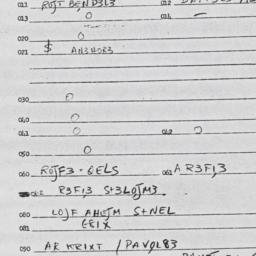 011 ROJT BEND3L3 012
013 O 014 –
020 O
021 $ AN3HOR3
030 O
040 O
041 O 042 O
050 O
060 ROJF3 · GELS 061 AR3F,3
062 R3F,3 S+3LOJM3
080 LOJF AHOJM S+NEL
081 GRIX
090 AR KRIXT / PAVOL83